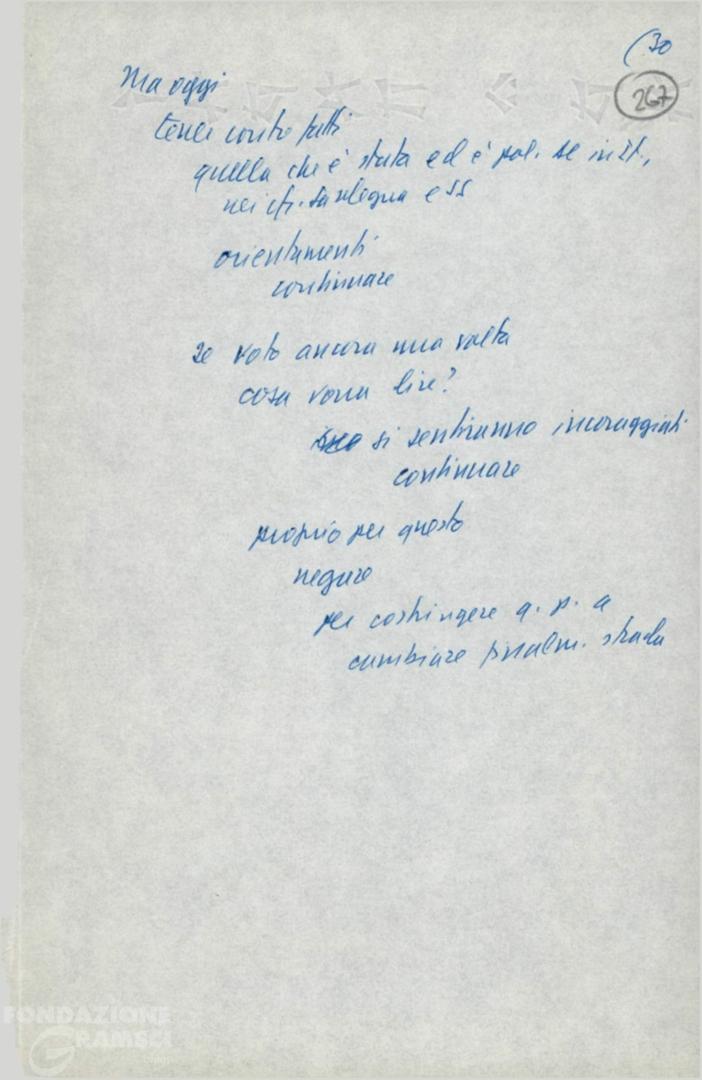 (30
267
Ma oggi
tener conto fatti
quella che è stata ed è pol. DC in It.,
nei cfr. Sardegna e SS
orientamenti
continuare
se voto ancora una volta
cosa vorrà dire?
si sentiranno incoraggiati
continuare
proprio per questo
negare
per costringere q. p. a
cambiare finalm. strada
FONDAZIONE
GRAMSCI